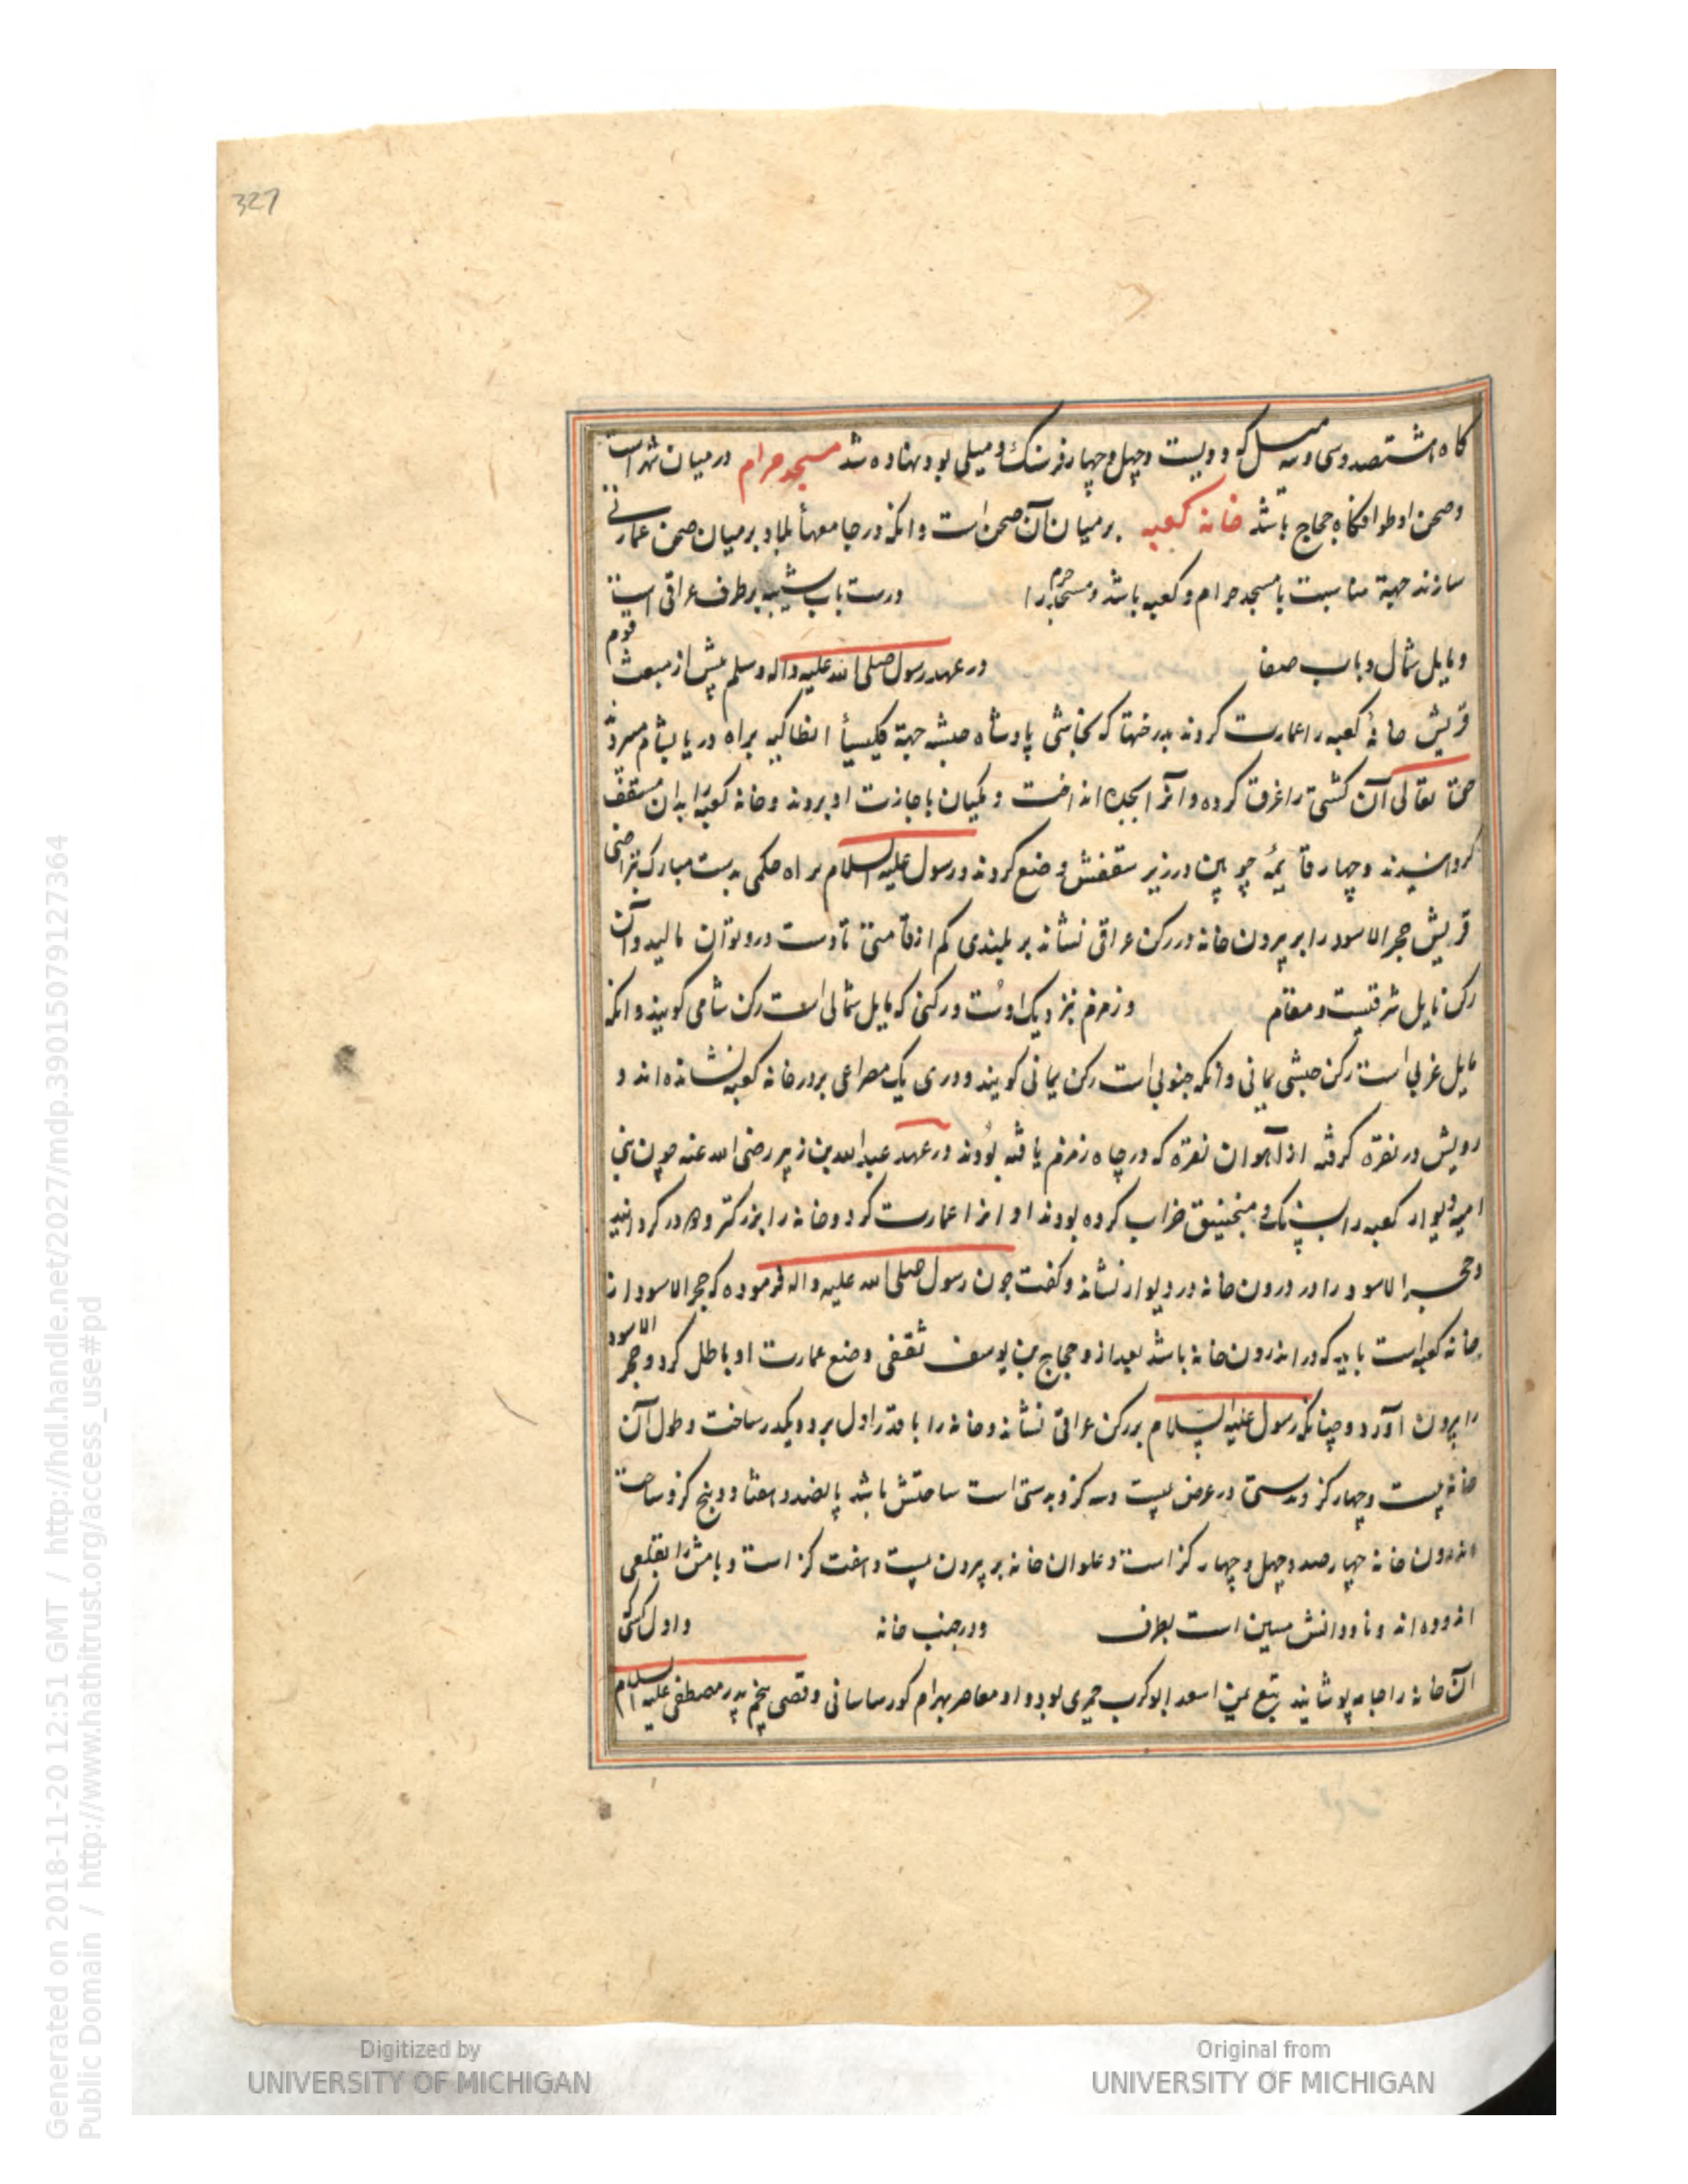 327
کاه هشتصد و سی و سه میل که دویست و چهل و چهار فرسنک و میلی بود نهاده شد مسجد حرام در میان شهر است
و صحن او طوافکاه حجاج باشد خانه کعبه بر میان آن صحن است و انکه در جامعهأ بلاد بر میان صحن عمارتی
سازند جهة مناسبت با مسجد حرام و کعبه باشد و مسجد حرام را درست باب شیبه بر طرف عراقی است
و مایل شمال و باب صفا در عهد رسول صلی الله علیه و اله و سلم پیش از مبعث قوم
قریش خانهٔ کعبه را عمارت کردند بدرختها که نجاشی پادشاه حبشه جهة کلیسیأ انطاکیه براه دریا بشام میبرد
حق تعالی آن کشتی را غرق کرده و آنرا بجده انداخت و مکیان باجازت او بردند و خانه کعبه را بدان مسقف
کردانیدند و چهار قایمهٔ چوبین در زیر سقفش وضع کردند و رسول علیه السلام براه حکمی بدست مبارک بتراضی
قریش حجر الاسود را بر بیرون خانه در رکن عراقی نشاند بر بلندی کم از قامتی تا دست و رو توان مالید و آن
رکن مایل شرقیست و مقام و زمزم نزدیک اوست و رکنی که مایل شمالی است رکن شامی کویند و انکه
مایل غربی است رکن حبشی یمانی و انکه جنوبی است رکن یمانی کویند و دری یک مصراعی بر در خانه کعبه نشانده اند و
رویش در نقره کرفته از آهوان نقره که در چاه زمزم یافته بودند در عهد عبد الله بن زبیر رضی الله عنه چون بنی
امیه دیوار کعبه را بسنک منجنیق خراب کرده بودند او انرا عمارت کرد و خانه را بزرکتر و دو در کردانید
و حجر الاسود را در درون خانه در دیوار نشاند و کفت چون رسول صلی الله علیه و اله فرموده که حجر الاسود از
خانه کعبه است باید که در اندرون خانه باشد بعد از و حجاج بن یوسف ثقفی وضع عمارت او باطل کرد و حجر الاسود
را بیرون آورد و چنانکه رسول علیه السلام بر رکن عراقی نشاند و خانه را با قدر اول برد و یکدر ساخت و طول آن
خانه بیست و چهار کز و بدستی در عرض بیست و سه کز و بدستی است ساحتش باشد پانصد و هفتاد و پنج کز و ساحت
اندرون خانه چهار صد و چهل و چهار کز است و علو آن خانه بر بیرون بیست و هفت کز است و بامش را بقلعی
اندوده اند و ناودانش مسین است بطرف و در جنب خانه و اول کسی که
آن خانه را جامه پوشانید تبع بن اسعد ابو کرب حمیری بود و او معاصر بهرام کور ساسانی و قصی پنجم پدر مصطفی علیه السلام
Generated on 2018-11-20 12:51 GMT / http://hdl.handle.net/2027/mdp.39015079127364
Public Domain / http://www.hathitrust.org/access_use#pd
Digitized by
UNIVERSITY OF MICHIGAN
Original from
UNIVERSITY OF MICHIGAN